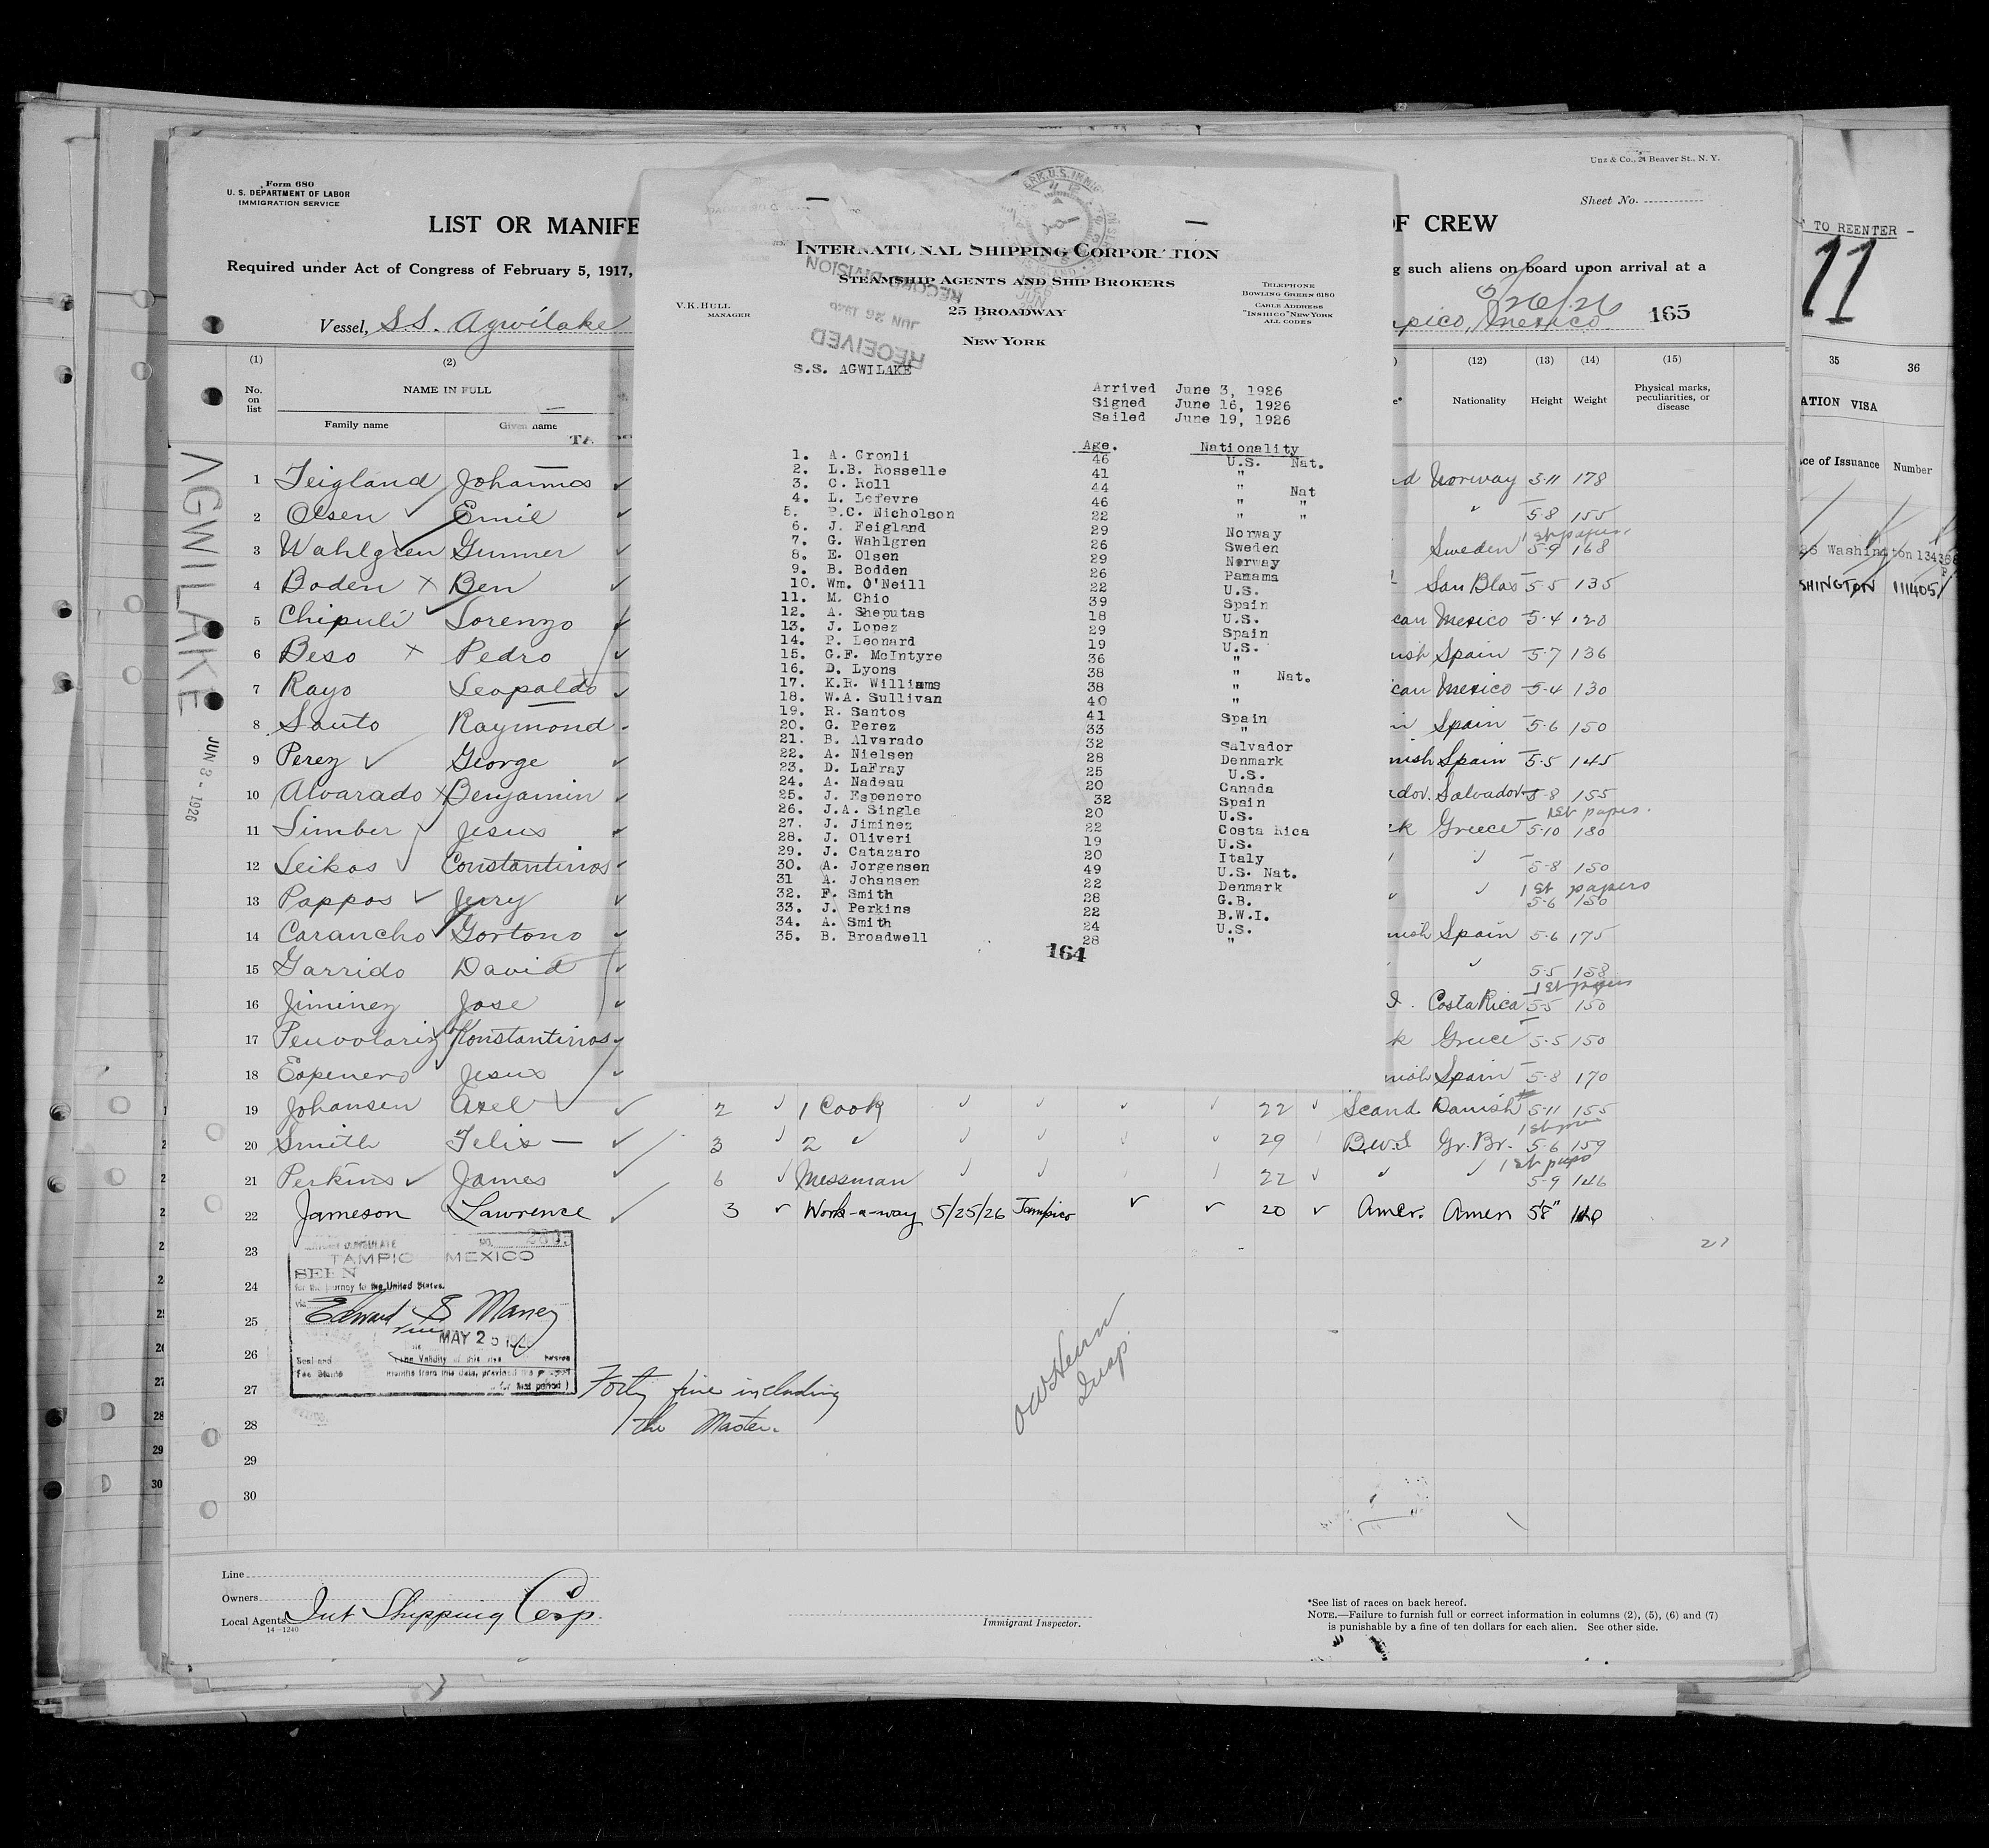 Unz & Co., 24 Beaver St., N. Y.
Form 680
U. S. DEPARTMENT OF LABOR
IMMIGRATION SERVICE
Sheet No.
LIST OR MANIFE
OF CREW
TO REENTER -
11
Required under Act of Congress of February 5, 1917,
g such aliens on board upon arrival at a
Vessel, S.S. Agwilake
pico, Mexico.
5/26/26
165
INTERNATIONAL SHIPPING CORPORATION
STEAMSHIP AGENTS AND SHIP BROKERS
V. K. HULL
MANAGER
25 BROADWAY
NEW YORK
TELEPHONE
BOWLING GREEN 6180
CABLE ADDRESS
"INSHICO" NEW YORK
ALL CODES
RECORD DIVISION
JUN 26 1926
RECEIVED
S.S. AGWILAKE
Arrived June 3, 1926
Signed June 16, 1926
Sailed June 19, 1926
Age. Nationality
1. A. Gronli 46 U.S. Nat.
2. L.B. Rosselle 41 "
3. C. Roll 44 " Nat
4. L. Lefevre 46 " "
5. P.C. Nicholson 22 " "
6. J. Feigland 29 Norway
7. G. Wahlgren 26 Sweden
8. E. Olsen 29 Norway
9. B. Bodden 26 Panama
10. Wm. O'Neill 22 U.S.
11. M. Chio 39 Spain
12. A. Sheputas 18 U.S.
13. J. Lopez 29 Spain
14. P. Leonard 19 U.S.
15. G.F. McIntyre 36 "
16. D. Lyons 38 " Nat.
17. K.R. Williams 38 "
18. W.A. Sullivan 40 "
19. R. Santos 41 Spain
20. G. Perez 33 "
21. B. Alvarado 32 Salvador
22. A. Nielsen 28 Denmark
23. D. LaFray 25 U.S.
24. A. Nadeau 20 Canada
25. J. Espenero 32 Spain
26. J.A. Single 20 U.S.
27. J. Jiminez 22 Costa Rica
28. J. Oliveri 19 U.S.
29. J. Catazaro 20 Italy
30. A. Jorgensen 49 U.S. Nat.
31 A. Johansen 22 Denmark
32. F. Smith 28 G.B.
33. J. Perkins 22 B.W.I.
34. A. Smith 24 U.S.
35. B. Broadwell 28 "
164
(1) (2) (12) (13) (14) (15)
No. on list
NAME IN FULL
Family name Given name
Nationality Height Weight Physical marks, peculiarities, or disease
35 36
ATION VISA
ce of Issuance Number
Washington 13438
SHINGTON 111405
AGWILAKE JUN 3 - 1926
1 Teigland Johannes Norway 5-11 178
2 Olsen Emil " 5-8 155
3 Wahlgren Gunner Sweden 5-9 168 1st papers
4 Boden Ben San Blas 5-5 135
5 Chipuli Lorenzo can Mexico 5-4 120
6 Beso Pedro nish Spain 5-7 136
7 Rayo Leopaldo can Mexico 5-4 130
8 Souto Raymond Spain 5-6 150
9 Perez George nish Spain 5-5 145
10 Alvarado Benjamin ador. Salvador 5-8 155
11 Limber Jesus k Greece 5-10 180 1st papers.
12 Leikos Constantinos 5-8 150
13 Pappos Jerry 5-6 150 1st papers
14 Carancho Gortono nish Spain 5-6 175
15 Garrido David 5-5 158
16 Jiminez Jose Costa Rica 5-5 150 1st papers
17 Konstantinos k Greece 5-5 150
18 Espenero Jesus nish Spain 5-8 170
19 Johansen Axel 2 1 Cook 22 Scand. Danish 5-11 155
20 Smith Felix — 3 2 29 B.W.I Gr. Br. 5-6 159
21 Perkins James 6 Messman 22 5-9 146
22 Jameson Lawrence 3 Work-a-way 5/25/26 Tampico 20 Amer. Amer 5'8"
23
24
25
26
27
28
29
30
TAMPICO MEXICO
SEEN
for the journey to the United States.
Edward S Maney
MAY 25
Forty five including
the Master.
Line
Owners
Local Agents Int Shipping Corp.
14—1240
Immigrant Inspector.
*See list of races on back hereof.
NOTE.—Failure to furnish full or correct information in columns (2), (5), (6) and (7)
is punishable by a fine of ten dollars for each alien. See other side.